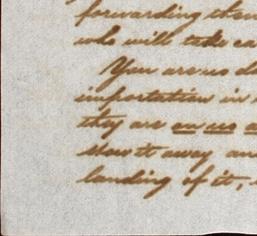 forwarding them
who will take ca
You are no do
importation in
they are
stow it away an
landing of it,